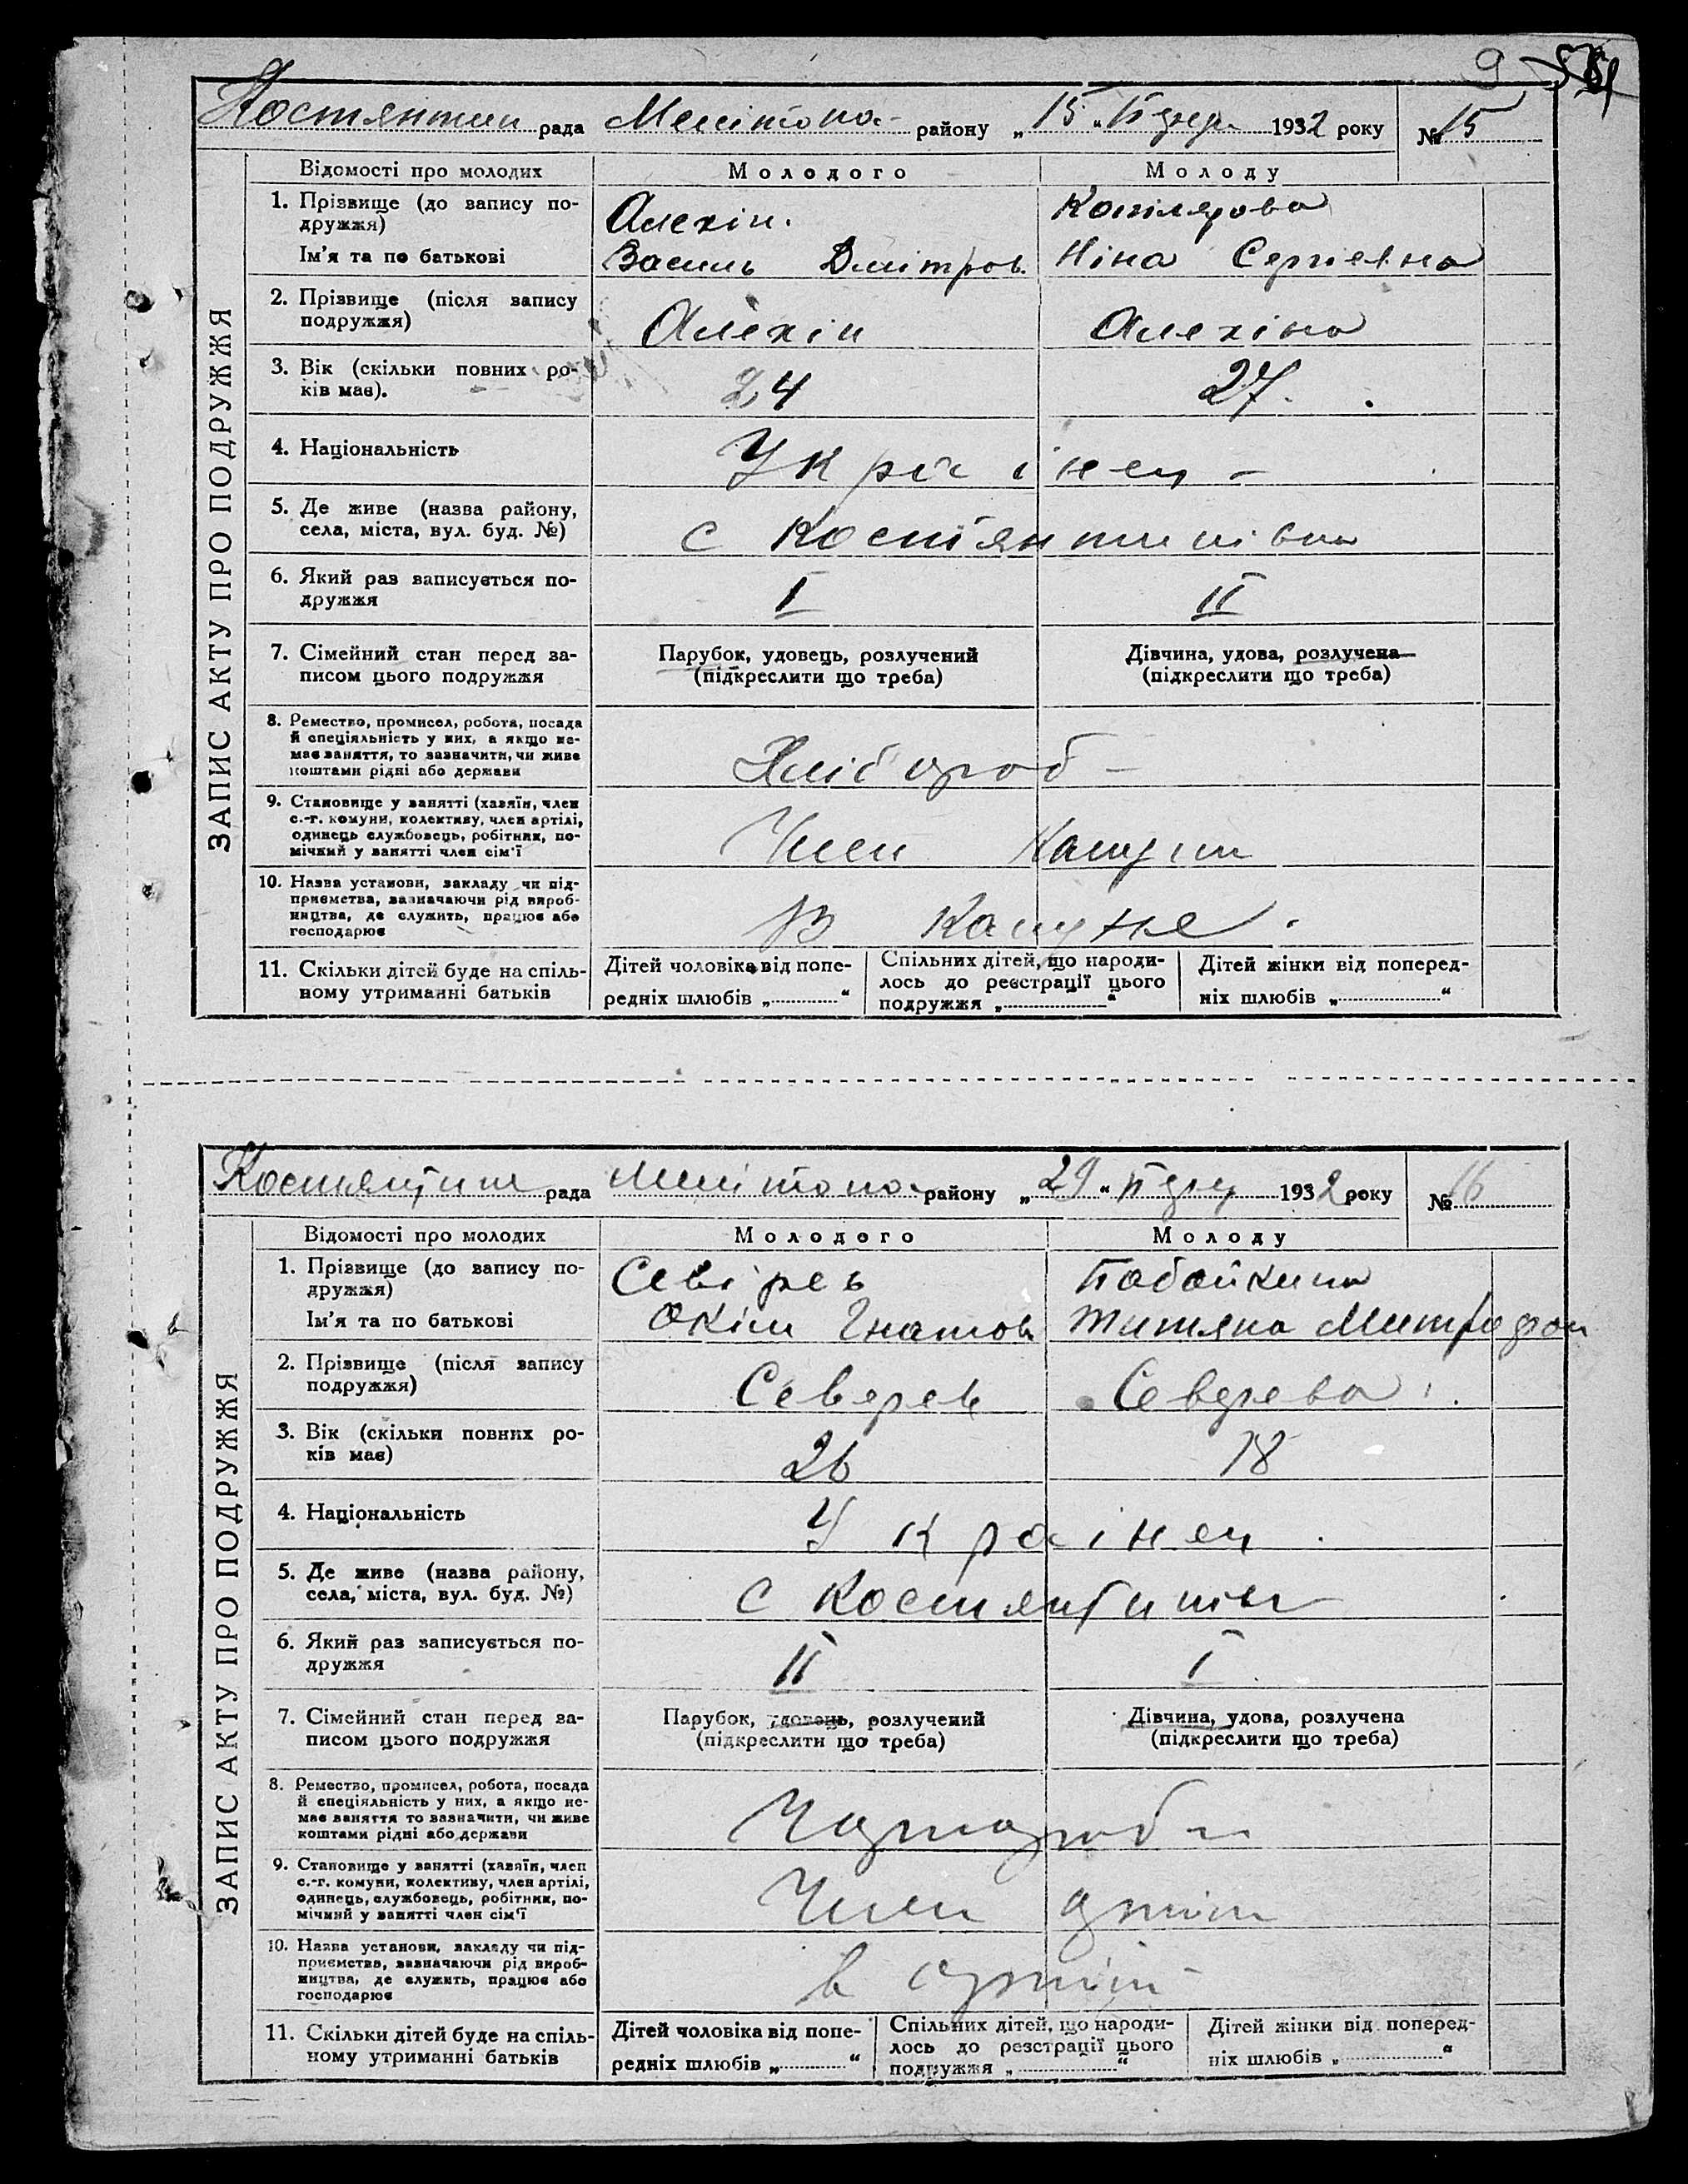 9
Костянтин рада Мелітопо- району „15“ 1932 року № 15
ЗАПИС АКТУ ПРО ПОДРУЖЖЯ
Відомості про молодих Молодого Молоду
1. Прізвище (до запису по-
дружжя)
Алехін. Котлярова
Ім'я та по батькові Василь Дмітров. Ніна Сергіевна
2. Прізвище (після запису
подружжя)
Алехін Алехіна
3. Вік (скільки повних ро-
ків має).
24 27.
4. Національність Українец -
5. Де живе (назва району,
села, міста, вул. буд. №)
с Костянтинівка
6. Який раз записується по-
дружжя
I II
7. Сімейний стан перед за-
писом цього подружжя
Парубок, удовець, розлучений
(підкреслити що треба)
Дівчина, удова, розлучена
(підкреслити що треба)
8. Ремество, промисел, робота, посада
й спеціяльність у них, а якщо не-
має заняття, то зазначити, чи живе
коштами рідні або держави
Хлібороб -
9. Становище у занятті (хазяїн, член
с.-г. комуни, колективу, член артілі,
одинець службовець, робітник, по-
мічний у занятті член сім'ї
Член Комуни
10. Назва установи, закладу чи під-
приємства, зазначаючи рід вироб-
ництва, де служить, працює або
господарює
В Комуне
11. Скільки дітей буде на спіль-
ному утриманні батьків
Дітей чоловіка від попе-
редніх шлюбів „ “
Спільних дітей, що народи-
лось до реєстрації цього
подружжя „ “
Дітей жінки від поперед-
ніх шлюбів „ “
Костянтин рада Мелітопо- району „29“ 1932 року № 16
ЗАПИС АКТУ ПРО ПОДРУЖЖЯ
Відомості про молодих Молодого Молоду
1. Прізвище (до запису по-
дружжя)
Севірев Бабайкина
Ім'я та по батькові Окім Гнатов Титяна Митрофон
2. Прізвище (після запису
подружжя)
Северев Северева
3. Вік (скільки повних ро-
ків має)
26 18
4. Національність Українец
5. Де живе (назва району,
села, міста, вул. буд. №)
с
6. Який раз записується по-
дружжя
II I
7. Сімейний стан перед за-
писом цього подружжя
Парубок, удовець, розлучений
(підкреслити що треба)
Дівчина, удова, розлучена
(підкреслити що треба)
8. Ремество, промисел, робота, посада
й спеціяльність у них, а якщо не-
має заняття то зазначити, чи живе
коштами рідні або держави
9. Становище у занятті (хазяїн, член
с.-г. комуни, колективу, член артілі,
одинець, службовець, робітник, по-
мічний у занятті член сім'ї
Член
10. Назва установи, закладу чи під-
приємства, зазначаючи рід вироб-
ництва, де служить, працює або
господарює
в
11. Скільки дітей буде на спіль-
ному утриманні батьків
Дітей чоловіка від попе-
редніх шлюбів „ “
Спільних дітей, що народи-
лось до реєстрації цього
подружжя „ “
Дітей жінки від поперед-
ніх шлюбів „ “